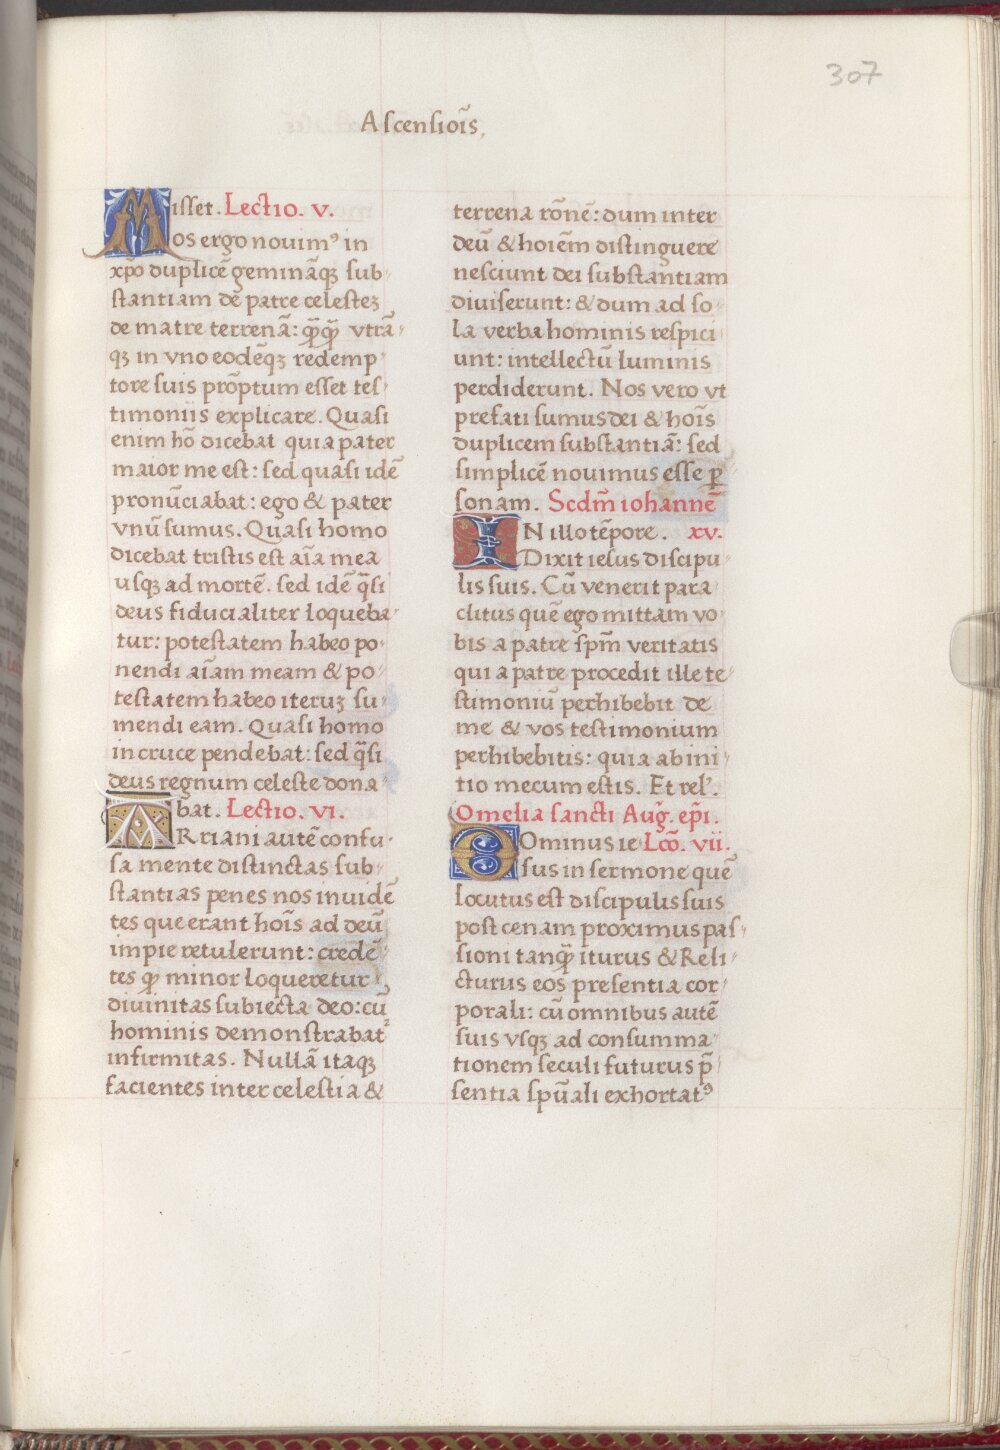 307
Ascensiōis,
isset. Lectio. v.
Mos ergo novimꝰ in
xp̄o duplicē geminā̄qꝫ sub
stantiam dē patre celesteꝫ
de matre terrenā: qꝫ̄qꝫ̄ vtrā
qꝫ in vno eodēqꝫ redemp
tore suis prōptum esset tes
timoniis explicare. Quasi
enim hō dicebat quia pater
maior me est: sed quasi idē
pronūciabat: ego & pater
vnū sumus. Quasi homo
dicebat tristis est aīa mea
usqꝫ ad mortē. sed idē q̄si
deus fiducialiter loqueba
tur: potestatem habeo po
nendi aīam meam & po
testatem habeo iteruꝫ su
mendi eam. Quasi homo
in cruce pendebat: sed q̄si
deus regnum celeste dona
bat. Lectio. vi.
ARriani autē confu
sa mente distinctas sub
stantias penes nos invidē
tes que erant hoīs ad deū
impie retulerunt: credē
tes ꝙ minor loqueretur
divinitas subiecta deo: cū
hominis demonstrabat
infirmitas. Nullā itaqꝫ
facientes inter celestia &
terrena rōnē: dum inter
deū & hoiēm distinguere
nesciunt dei substantiam
diviserunt: & dum ad so
la verba hominis respici
unt: intellectū luminis
perdiderunt. Nos vero vt
prefati sumus dei & hoīs
duplicem substantiā: sed
simplicē novimus esse ꝑ
sonam. Scdm̄ iohannē
IN illo tēpore. xv.
Dixit iesus discipu
lis suis. Cū venerit para
clitus quē ego mittam vo
bis a patre spm̄ veritatis
qui a patre procedit ille te
stimoniū perhibebit de
me & vos testimonium
perhibebitis: quia ab ini
tio mecum estis. Et relˀ.
Omelia sancti Auḡ. ep̄i.
DOminus ie Lcō. vii.
sus in sermone quē
locutus est discipulis suis
post cenam proximus pas
sioni tanqꝫ̄ iturus & Reli
cturus eos presentia cor
porali: cū omnibus autē
suis vsqꝫ ad consumma
tionem seculi futurus p̄
sentia spū̄ali exhortatꝰ